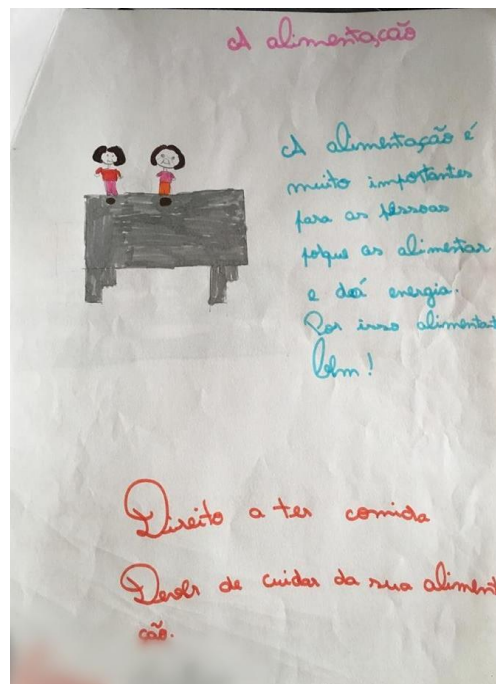 A alimentação
A alimentação é
muito importantes
para as pessoas
poque as alimentar
e deá energia.
Por isso alimentat
bem!
Direito a ter comida
Dever de cuidar da sua alimen
ção.